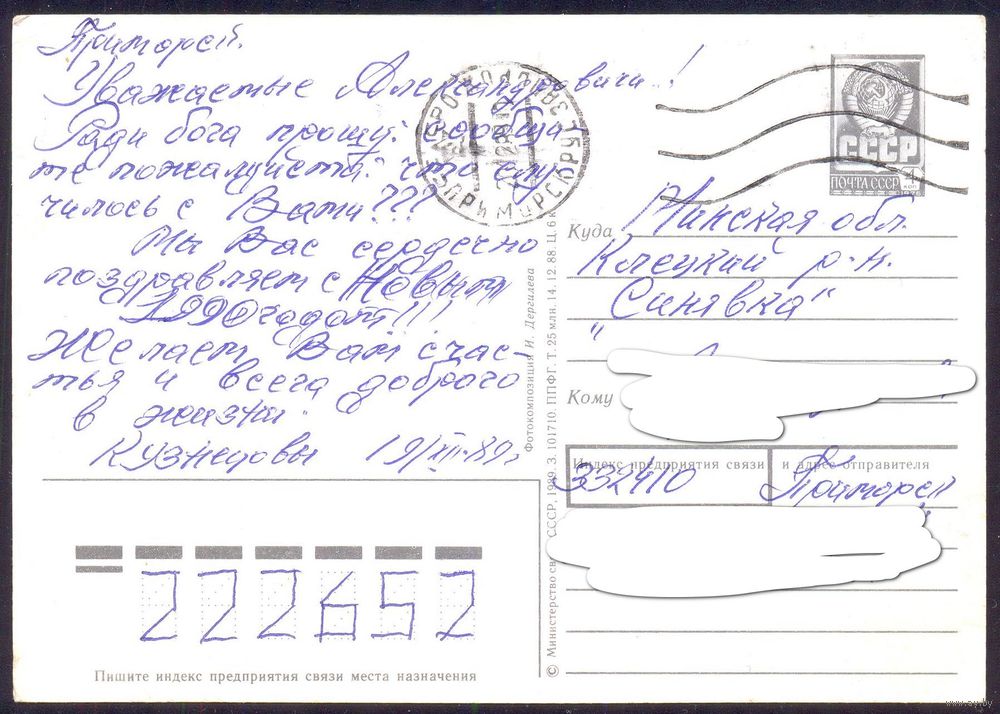 Приморск.
Уважаемые Александровичи!
Ради бога прошу: сообщи-
те пожалуйста: что слу-
чилось с Вами???
Мы Вас сердечно
поздравляем с Новым
1990 годом!!!
Желаем Вам счас-
тья и всего доброго
в жизни.
Кузнецовы 19/XII-89г
СССР
ПОЧТА СССР 4 коп
Куда Минская обл.
Клецкий р-н.
"Синявка"
Кому
Индекс предприятия связи и адрес отправителя
332410 Приморск
222652
Пишите индекс предприятия связи места назначения
Фотокомпозиция И. Дергилева
© Министерство связи СССР, 1989. З. 101710. ППФГ. Т. 25 млн. 14.12.88 Ц. 6 к